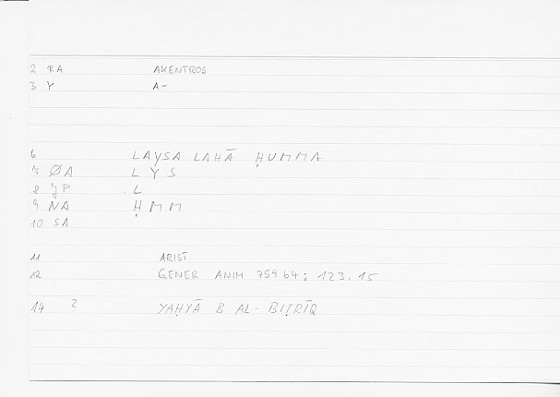 2 RA AKENTROS
3 Y A-
6 LAYSA LAHĀ ḤUMMA
7 ØA L Y S
8 YP L
9 NA Ḥ M M
10 SA
11 ARIST
12 GENER ANIM 759b4; 123.15
14 2 YAḤYĀ B AL-BIṬRĪQ